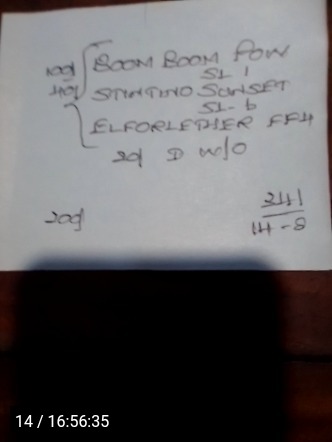 100/ BOOM BOOM POW
SL 1
40/ STINTINO SUNSET
SL-6
ELFORLETHER FF4
20/ D W/O
200/
3441
14-8
14 / 16:56:35